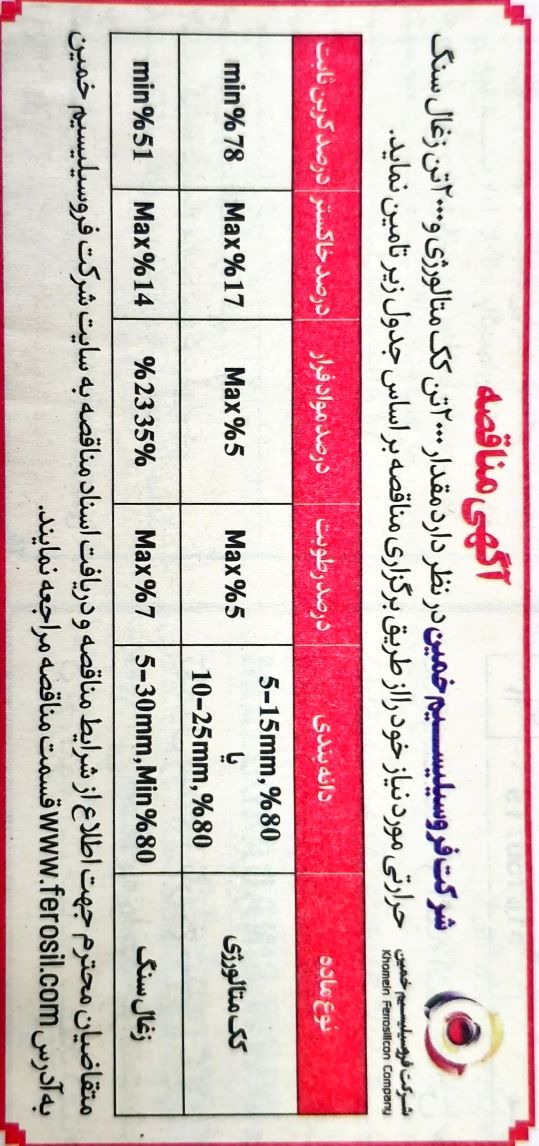 آگهی مناقصه
شرکت فروسیلیسیم خمین
Khomein Ferrosilicon Company
شرکت فروسیلیسیم خمین در نظر دارد مقدار ۲۰۰۰ تن کک متالورژی و ۲۰۰۰ تن زغال سنگ
حرارتی مورد نیاز خود را از طریق برگزاری مناقصه بر اساس جدول زیر تامین نماید.
نوع ماده دانه بندی درصد رطوبت درصد مواد فرار درصد خاکستر درصد کربن ثابت
کک متالورژی 5-15mm,%80 یا 10-25mm,%80 Max%5 Max%5 Max%17 min%78
زغال سنگ 5-30mm,Min%80 Max%7 %2335% Max%14 min%51
متقاضیان محترم جهت اطلاع از شرایط مناقصه و دریافت اسناد مناقصه به سایت شرکت فروسیلیسیم خمین
به آدرس www.ferosil.com قسمت مناقصه مراجعه نمایند.